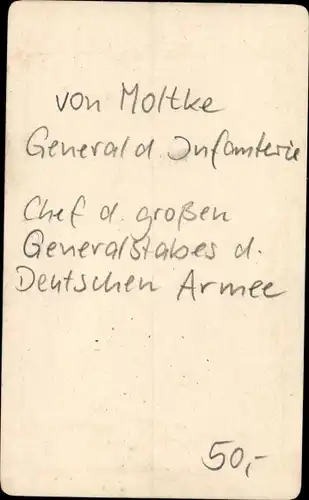 von Moltke
General d. Infanterie
Chef d. großen
Generalstabes d.
Deutschen Armee
50,-